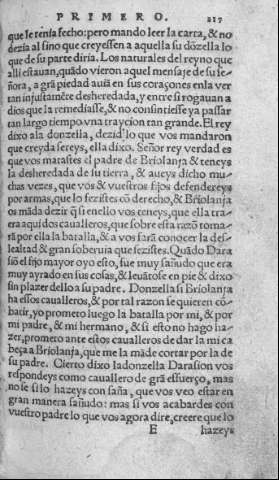 PRIMERO. 217
que le tenía fecho: pero mando leer la carta, & no
dezia al sino que creyessen a aquella su dōzella lo
que de su parte diria. Los naturales del reyno que
alli estauan, quādo vieron aquel mensaje de su se-
ñora, a grā piedad auiā en sus coraçones enla ver
tan injustamēte desheredada, y entre si rogauan a
dios que la remediasse, & no consintiesse ya passar
tan largo tiempo vna traycion tan grande. El rey
dixo ala donzella, dezid lo que vos mandaron
que creyda sereys, ella dixo. Señor rey verdad es
que vos matastes el padre de Briolanja & teneys
la desheredada de su tierra, & aueys dicho mu-
chas vezes, que vos & vuestros fijos defendereys
por armas, que lo fezistes cō derecho, & Briolanja
os māda dezir q̄ si enello vos teneys, que ella tra-
era aqui dos caualleros, que sobre esta razō toma-
rā por ella la batalla, & a vos farā conocer la des-
lealtad & gran soberuia que fezistes. Quādo Dara
siō el fijo mayor oyo esto, fue muy sañudo que era
muy ayrado en sus cosas, & leuātose en pie & dixo
sin plazer dello a su padre. Donzella si Briolanja
ha essos caualleros, & por tal razon se quieren cō-
batir, yo prometo luego la batalla por mi, & por
mi padre, & mi hermano, & si esto no hago ha-
zer, prometo ante estos caualleros de dar la mi ca
beça a Briolanja, que me la māde cortar por la de
su padre. Cierto dixo la donzella Darasion vos
respondeys como cauallero de grā esfuerço, mas
no se si lo hazeys con saña, que vos veo estar en
gran manera sañudo: mas si vos acabardes con
vuestro padre lo que vos agora dire, creere que lo
E hazeys